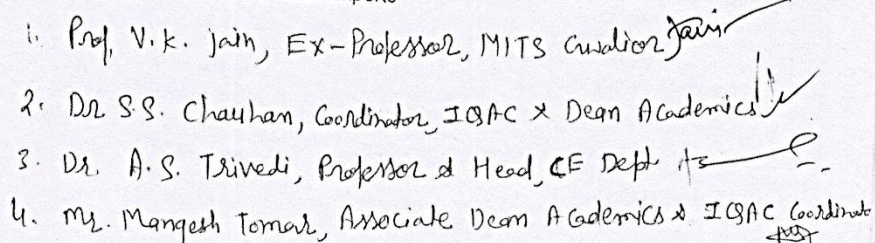 i. Prof, V.K. Jain, Ex-Professor, MITS Gwalior Jain
2. Dr S.S. Chauhan, Coordinator, IQAC & Dean Academics
3. Dr. A.S. Trivedi, Professor & Head, CE Dept
4. Mr. Mangesh Tomar, Associate Dean Academics & IQAC Coordinator